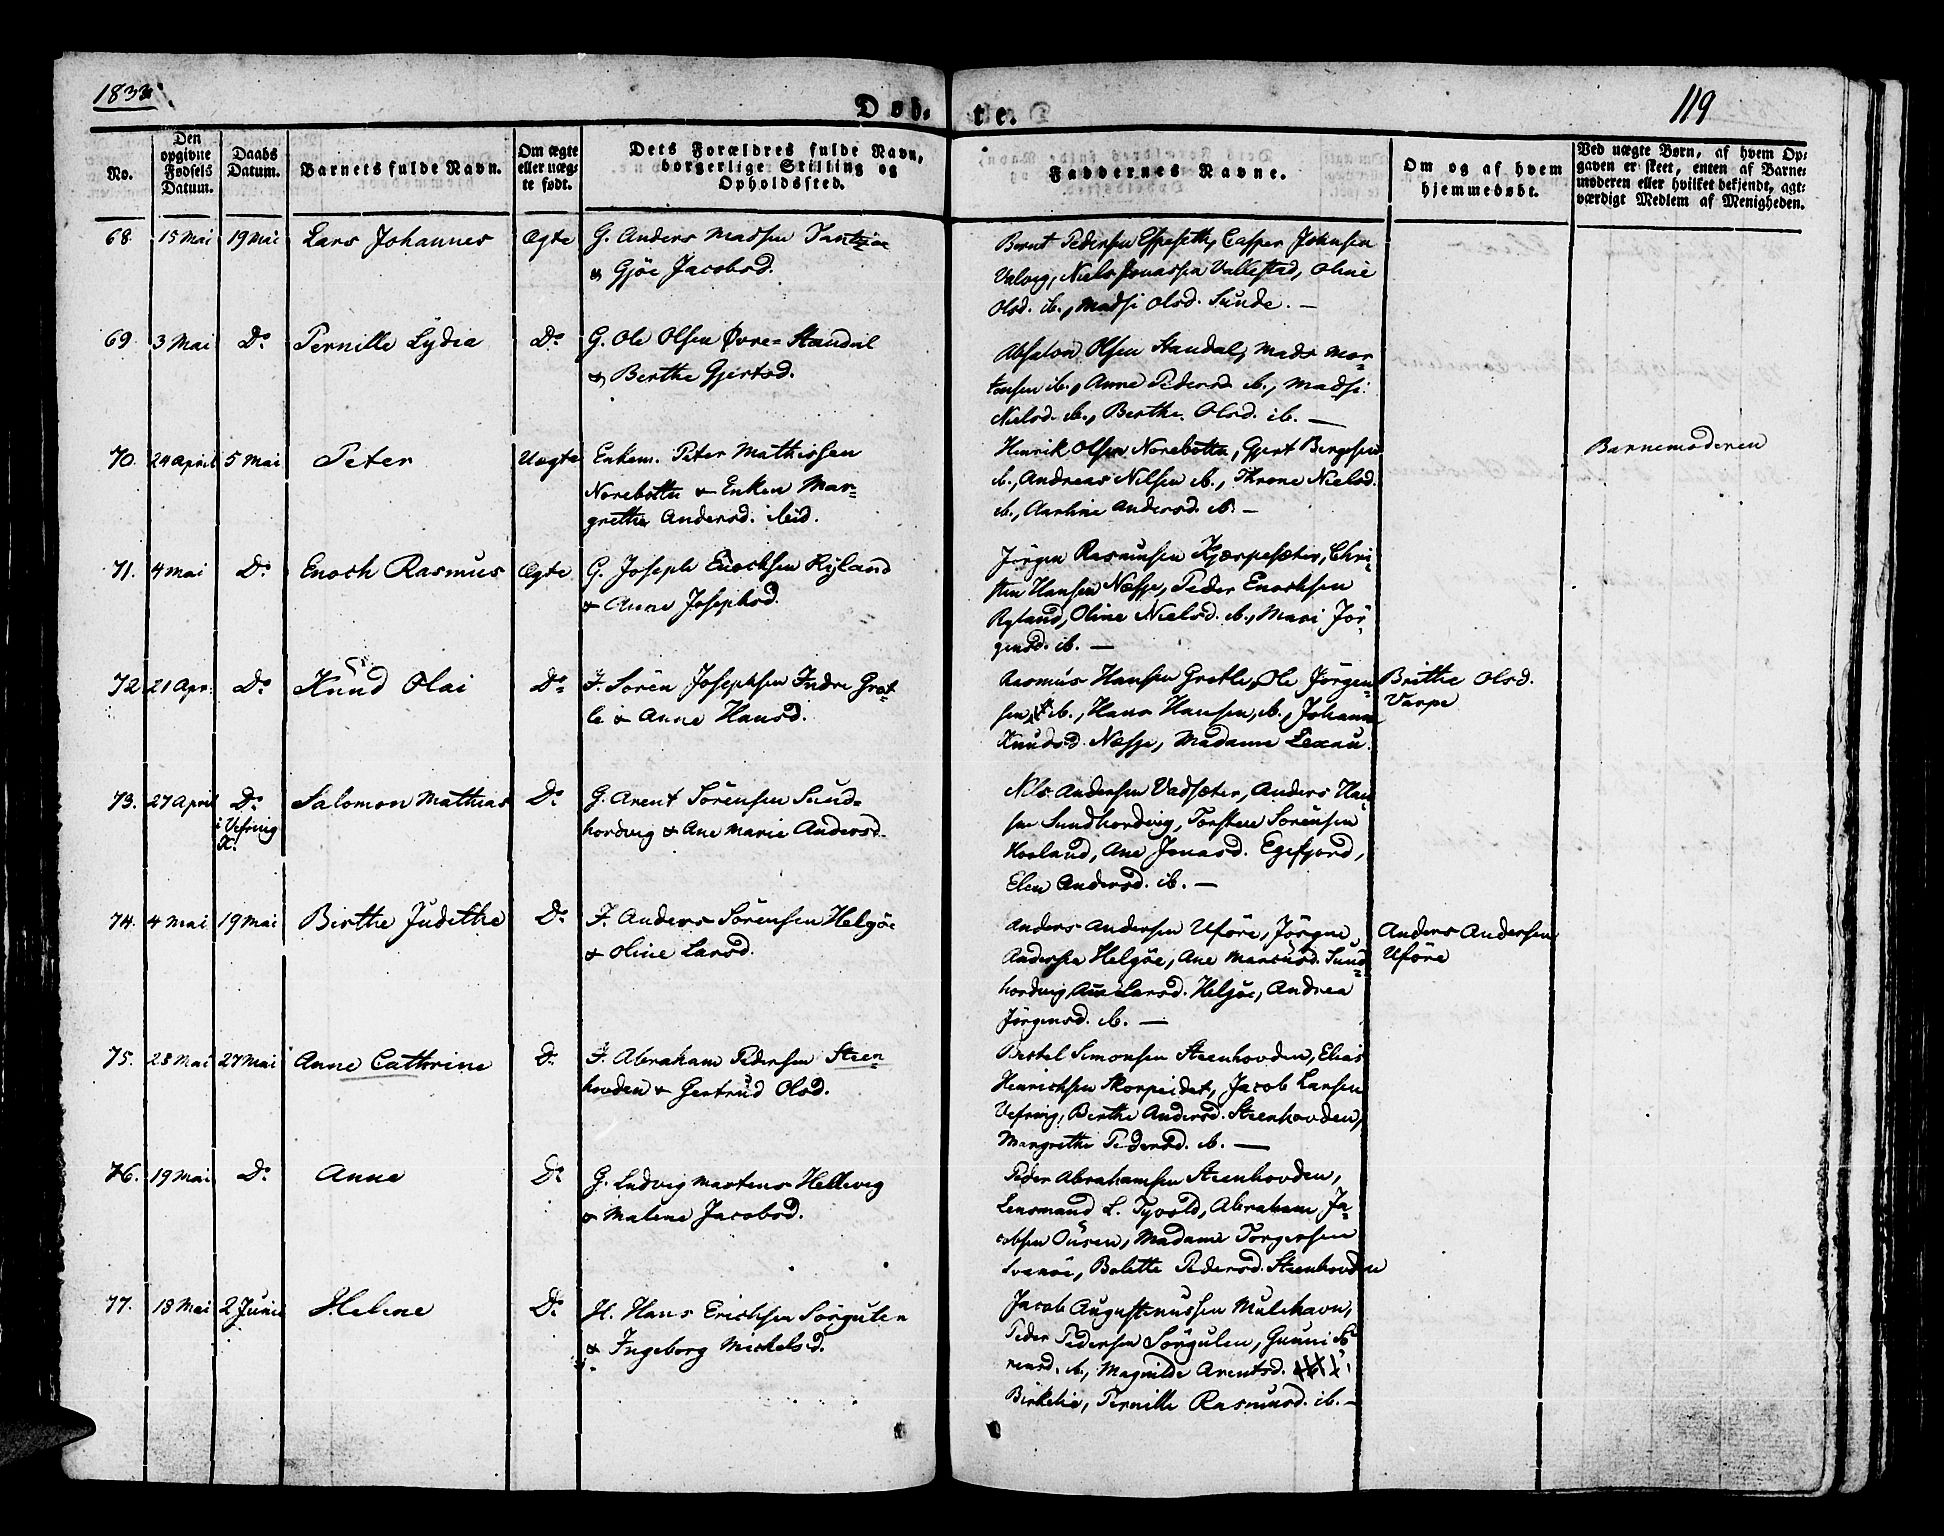 1833
Døb-
te.
119
No.
Den opgivne Fødsels Datum.
Daabs Datum.
Barnets fulde Navn.
Om ægte eller uægte født.
Dets Forældres fulde Navn, borgerlige Stilling og Opholdssted.
Faddernes Navne.
Om og af hvem hjemmedøbt.
Ved uægte Børn, af hvem Opgaven er skeet, enten af Barnemoderen eller hvilket bekjendt, agtværdigt Medlem af Menigheden.
68. 15 Mai 19 Mai Lars Johannes Ægte G. Anders Madsen
& Gjöe Jacobsd.
Bernt Pedersen Espeseth, Casper Johnsen
Valvig, Niels Jonassen Vallestad, Oline
Olsd. ib., Madsi Olsd. Sunde. —
69 3 Mai Do Pernille Lydia Do G. Ole Olsen Øvre= Standal
& Berthe Gjertsd.
Absalon Olsen Standal, Mads Mor=
tensen ib., Anne Pedersd. ib., Madsi
Nielsd. ib., Berthe Olsd. ib. —
70. 24 April 5 Mai Peter Uægte Enkem. Peter Mathissen
Norebotten & Enken Mar=
grethe Andersd. ibid.
Henrik Olsen Norebotten, Gjert Bergesen
ib., Andreas Nilsen ib., Throne Nielsd.
ib., Andersd. ib. —
Barnemoderen
71. 4 Mai Do Enoch Rasmus Ægte G. Joseph Enochsen Ryland
& Anne Josephsd.
Jörgen Rasmussen Kjærpesæter, Chri=
sten Hansen Næsje, Peder Enochsen
Ryland, Oline Nielsd. ib., Mari Jör=
gensd. ib. —
72 21 Apr. Do Knud Olai Do I. Sören Josephsen Indre Gret=
le & Anne Hansd.
Rasmus Hansen Gretle, Ole Jörgen=
sen ib., Hans Hansen, ib., Johanne
Knudsd. Næsje, Madame Lexau.
Brithe Olsd.
Varpe
73. 27 April Do Salomon Mathias Do G. Arent Sörensen Sund=
i Vefring
K.
hordvig & Ane Marie Andersd.
Nils Andersen Vadsæter, Anders Han=
sen Sundhordvig, Torsten Sörensen
Horland, Ane Jonasd. Egefjord,
Elen Andersd. ib. —
74. 4 Mai 19 Mai Birthe Judithe Do I. Anders Sörensen Helgöe
& Oline Larsd.
Anders Andersen Uföre, Jörgen
Andersen Helgöe, Ane Marcusd. Sund=
hordvig, Ane Larsd. Helgöe, Andrea
Jörgensd. ib. —
Anders Andersen
Uföre
75. 23 Mai 27 Mai Anne Cathrine Do I. Abraham Pedersen Steen=
hovden & Gertrud Olsd.
Bertel Simonsen Steenhovden, Elias
Henrichsen Skorpeidet, Jacob Larsen
Vefring, Berthe Andersd. Steenhovden,
Margrethe Pedersd. ib. —
76. 19 Mai Do Anne Do G. Ludvig Martens Hellevig
& Malene Jacobsd.
Peder Abrahamsen Steenhovden,
Lensmand L. Tyvold, Abraham Ja=
cobsen Ousen, Madame Torgersen
Svanöe, Bolette Pedersd. Steenhovden
77. 18 Mai 2 Junii Helene Do H. Hans Erichsen Sörgulen
& Ingeborg Michelsd.
Jacob Augustinussen Mulehavn,
Peder Pedersen Sörgulen, Gunni Sö=
rensd. ib., Magnilde Arentsd.
Birkelie, Pernille Rasmusd. ib. —